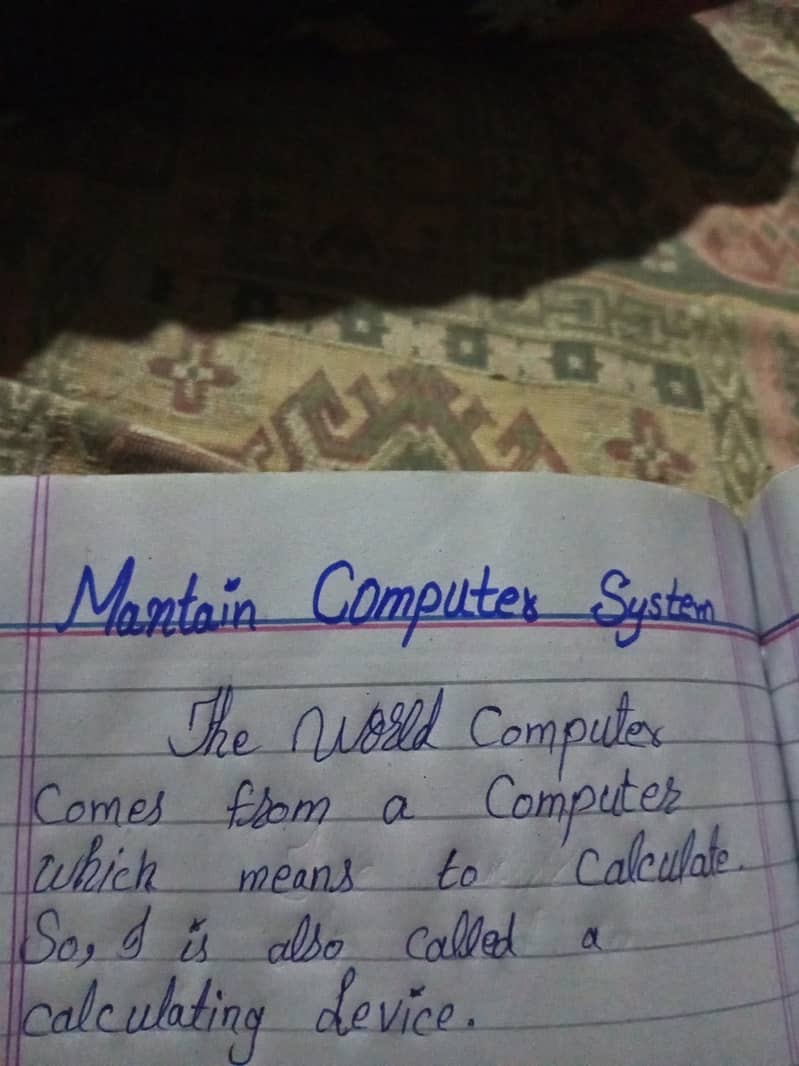 Mantain Computer System
The World Computer
Comes from a Computer
which means to Calculate.
So, I is also called a
calculating device.